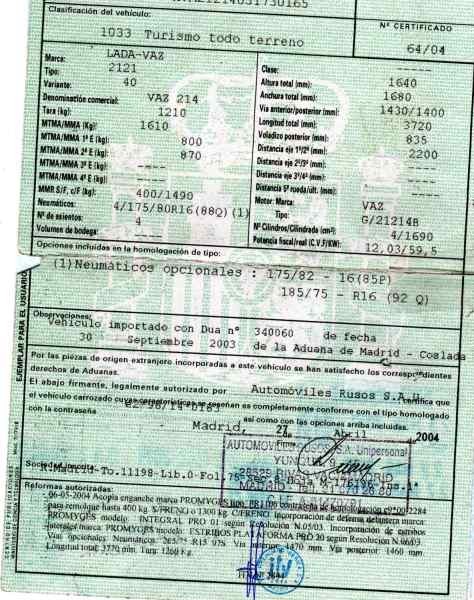 Clasificación del vehículo:
Nº CERTIFICADO
1033 Turismo todo terreno
64/04
Marca: LADA-VAZ
Tipo: 2121
Variante: 40
Denominación comercial: VAZ 214
Tara (kg) 1210
MTMA/MMA (Kg) 1610
MTMA/MMA 1º E (kg): 800
MTMA/MMA 2º E (kg): 870
MTMA/MMA 3º E (kg): ----
MTMA/MMA 4º E (kg): ----
MMR S/F, c/F (kg): 400/1490
Neumáticos: 4/175/80R16(88Q)(1)
Nº de asientos: 4
Volumen de bodega: ----
Clase: -----
Altura total (mm): 1640
Anchura total (mm): 1680
Vía anterior/posterior (mm): 1430/1400
Longitud total (mm): 3720
Voladizo posterior (mm): 835
Distancia eje 1º/2º (mm): 2200
Distancia eje 2º/3º (mm): ----
Distancia eje 3º/4º (mm): ----
Distancia 5ª rueda/últ. (mm): ----
Motor: Marca: VAZ
Tipo: G/21214B
Nº Cilindros/Cilindrada (cm³) 4/1690
Potencia fiscal/real (C.V.F/KW): 12,03/59,5
Opciones incluidas en la homologación de tipo:
(1)Neumáticos opcionales : 175/82 - 16(85P)
185/75 - R16 (92 Q)
EJEMPLAR PARA EL USUARIO
Observaciones:
Vehículo importado con Dua nº 340060 de fecha
30 Septiembre 2003 de la Aduana de Madrid - Coslada
Por las piezas de origen extranjero incorporadas a este vehículo se han satisfecho los correspondientes
derechos de Aduanas.
El abajo firmante, legalmente autorizado por Automóviles Rusos S.A.U certifica que
el vehículo carrozado cuyas características se reseñan es completamente conforme con el tipo homologado
con la contraseña
así como con las opciones arriba incluidas.
Madrid, 27 de Abril 2004
AUTOMOVILES RUSOS S.A. Unipersonal
MADRID
Sociedad inscrita:
Reformas autorizadas:
06-05-2004 Acopla enganche marca PROMYGES
para remolque hasta 400 kg. S/FRENO o 1300 kg. C/FRENO. Incorporación de defensa delantera marca
PROMYGES modelo: INTEGRAL PRO 01 según Resolución N.05/03. Incorporación de estribos
laterales marca: PROMYGES modelo: ESTRIBOS PLATAFORMA PRO 20 según Resolucion N.06/03
Vías opcionales Neumáticos: 265/75 R15 Vía anterior: 1470 mm. Vía posterior: 1460 mm.
Longitud total: 3770 mm. Tara: 1260 kg.
itv